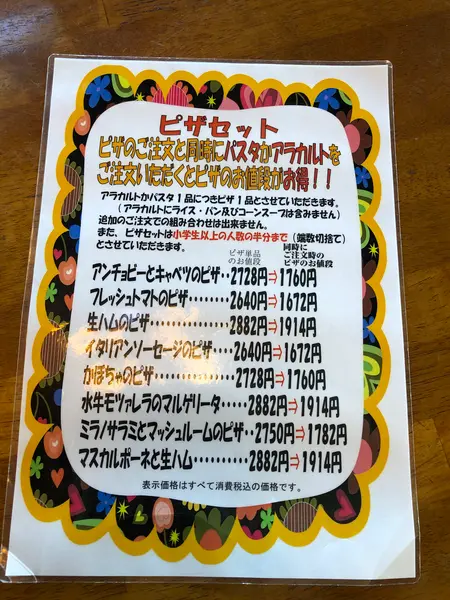 ピザセット
ピザのご注文と同時にパスタかアラカルトを
ご注文いただくとピザのお値段がお得！！
アラカルトかパスタ１品につきピザ１品とさせていただきます。
（アラカルトにライス・パン及びコーンスープは含みません）
追加のご注文での組み合わせは出来ません。
また、ピザセットは小学生以上の人数の半分まで（端数切捨て）
とさせていただきます。
ピザ単品のお値段
同時にご注文時のピザのお値段
アンチョビーとキャベツのピザ‥2728円⇒1760円
フレッシュトマトのピザ‥‥‥‥2640円⇒1672円
生ハムのピザ‥‥‥‥‥‥2882円⇒1914円
イタリアンソーセージのピザ‥2640円⇒1672円
かぼちゃのピザ‥‥‥‥‥‥2728円⇒1760円
水牛モツァレラのマルゲリータ‥‥2882円⇒1914円
ミラノサラミとマッシュルームのピザ‥2750円⇒1782円
マスカルポーネと生ハム‥‥‥2882円⇒1914円
表示価格はすべて消費税込の価格です。